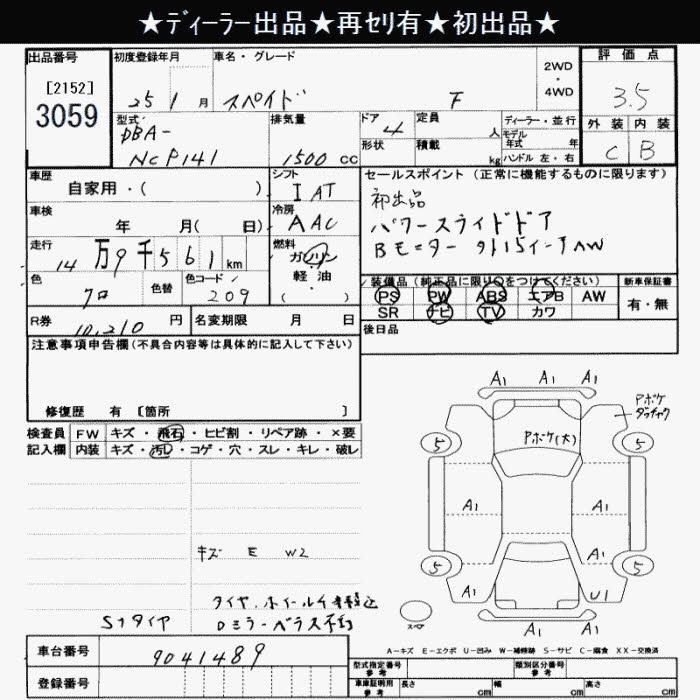 ★ディーラー出品★再セリ有★初出品★
出品番号
[2152]
3059
初度登録年月
25 1 月
車名・グレード
スペイド F
2WD
・
4WD
評価点
3.5
外装 内装
C B
型式
DBA-
NCP141
排気量
1500 cc
ドア 4
形状
定員 人
積載 kg
ディーラー・並行
モデル
年式 年
ハンドル 左・右
車歴
自家用・( )
シフト
I AT
車検
年 月( 日)
冷房
AAC
走行
14万9千561km
燃料
ガソリン
軽油
( )
色
クロ
色替
色コード
209
R券
10,210 円
名変期限 月 日
セールスポイント(正常に機能するものに限ります)
初出品
パワースライドドア
Bモニター 外15インチAW
装備品(純正品に限り○をつけてください)
PS PW ABS エアB AW
SR ナビ TV カワ
新車保証書
有・無
後日品
注意事項申告欄(不具合内容等は具体的に記入して下さい)
修復歴 有 [箇所 ]
検査員
記入欄
FW キズ・飛石・ヒビ割・リペア跡・×要
内装 キズ・汚し・コゲ・穴・スレ・キレ・破レ
キズ E W2
タイヤ、ホイール
Sタイヤ
Dミラーベラス
A1 A1 A1
Pボケ
Pボケ(大)
5 5
A1 A1
A1 A1
5 5
A1 U1
スペア
A1 A1
A-キズ E-エクボ U-凹み W-補修跡 S-サビ C-腐食 XX-交換済
車台番号
9041489
登録番号
型式指定番号
参考
類別区分番号
参考
車庫証明用
参考
長さ cm
幅 cm
高さ cm